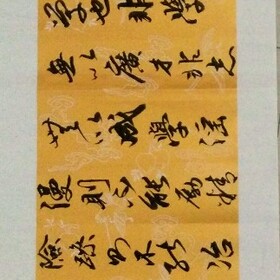 學也非學
無以廣才非志
無以成學淫
漫則不能勵精
險躁則不能治